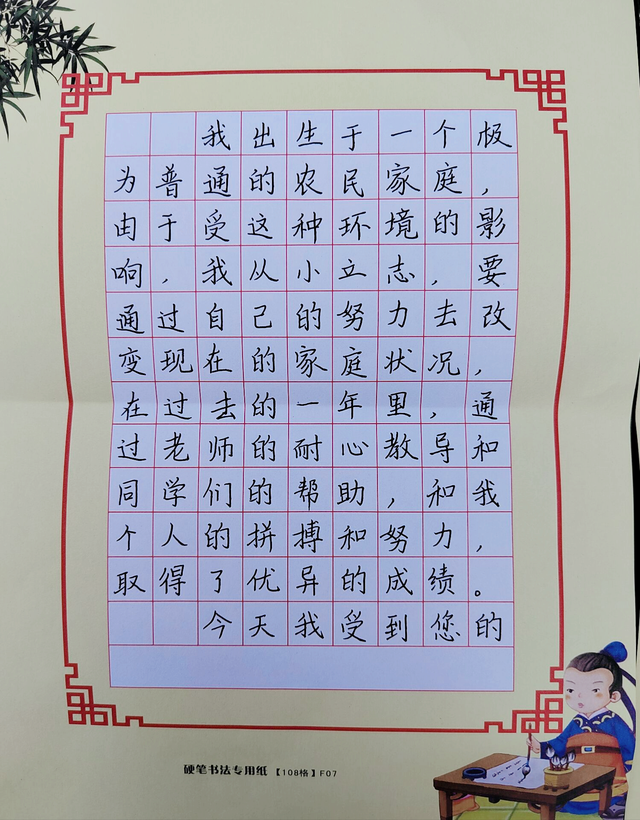 我出生于一个极
为普通的农民家庭，
由于受这种环境的影
响，我从小立志，要
通过自己的努力去改
变现在的家庭状况，
在过去的一年里，通
过老师的耐心教导和
同学们的帮助，和我
个人的拼搏和努力，
取得了优异的成绩。
今天我受到您的
硬笔书法专用纸【108格】F07